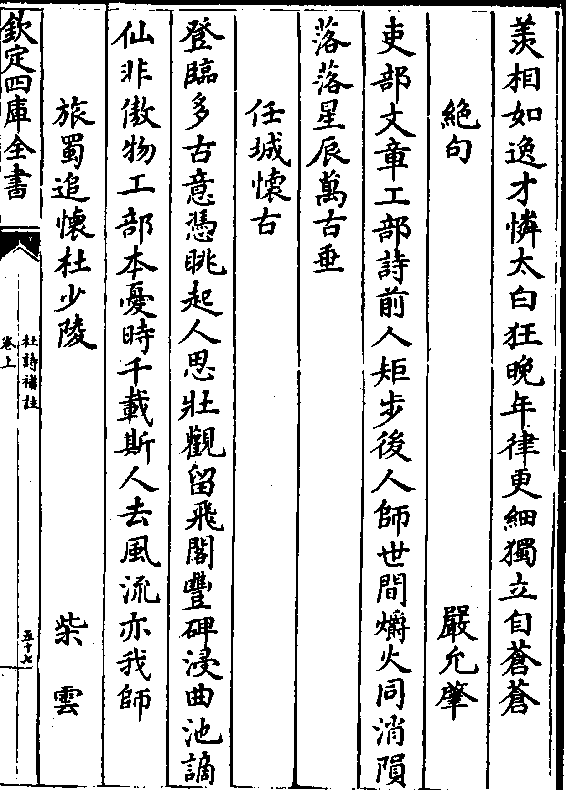 羨相如逸才憐太白狂晚年律更細獨立自蒼蒼
絶句 嚴允肇
吏部文章工部詩前人矩步後人師世間爝火同消隕
落落星辰萬古垂
任城懷古
登臨多古意憑眺起人思壯觀留飛閣豐碑浸曲池謫
仙非傲物工部本憂時千載斯人去風流亦我師
旅蜀追懷杜少陵 柴雲
欽定四庫全書
杜詩補註
卷上
五十七